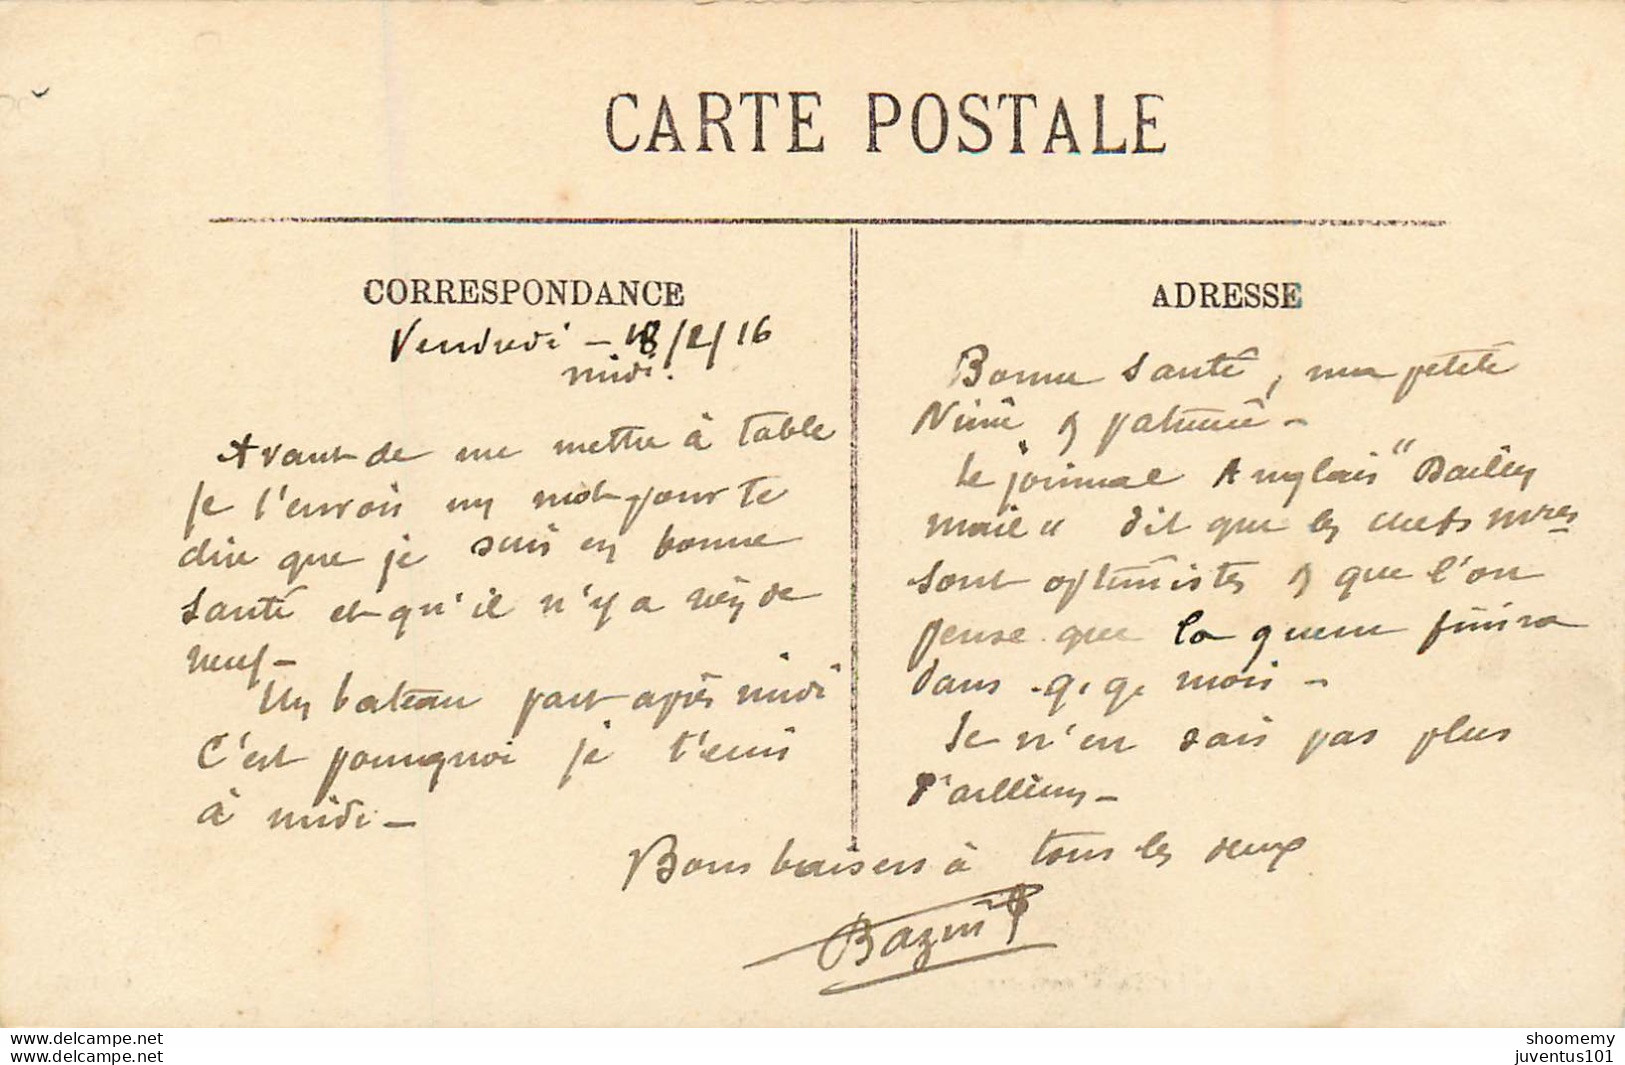 CARTE POSTALE
CORRESPONDANCE
Vendredi - 18/2/16
midi.
Avant de me mettre à table
je t'envoie un mot pour te
dire que je suis en bonne
santé et qu'il n'y a rien de
neuf -
Un bateau part après midi
C'est pourquoi je t'écris
à midi -
ADRESSE
Bonne santé, ma petite
Ninie & patience -
Le journal Anglais "Dailey
mail" dit que les chefs mres
sont optimistes & que l'on
pense que la guerre finira
dans q. q. mois -
Je n'en sais pas plus
d'ailleurs -
Bons baisers à tous les deux
Bazin
delcampe.net
delcampe.net
shoomemy
juventus101